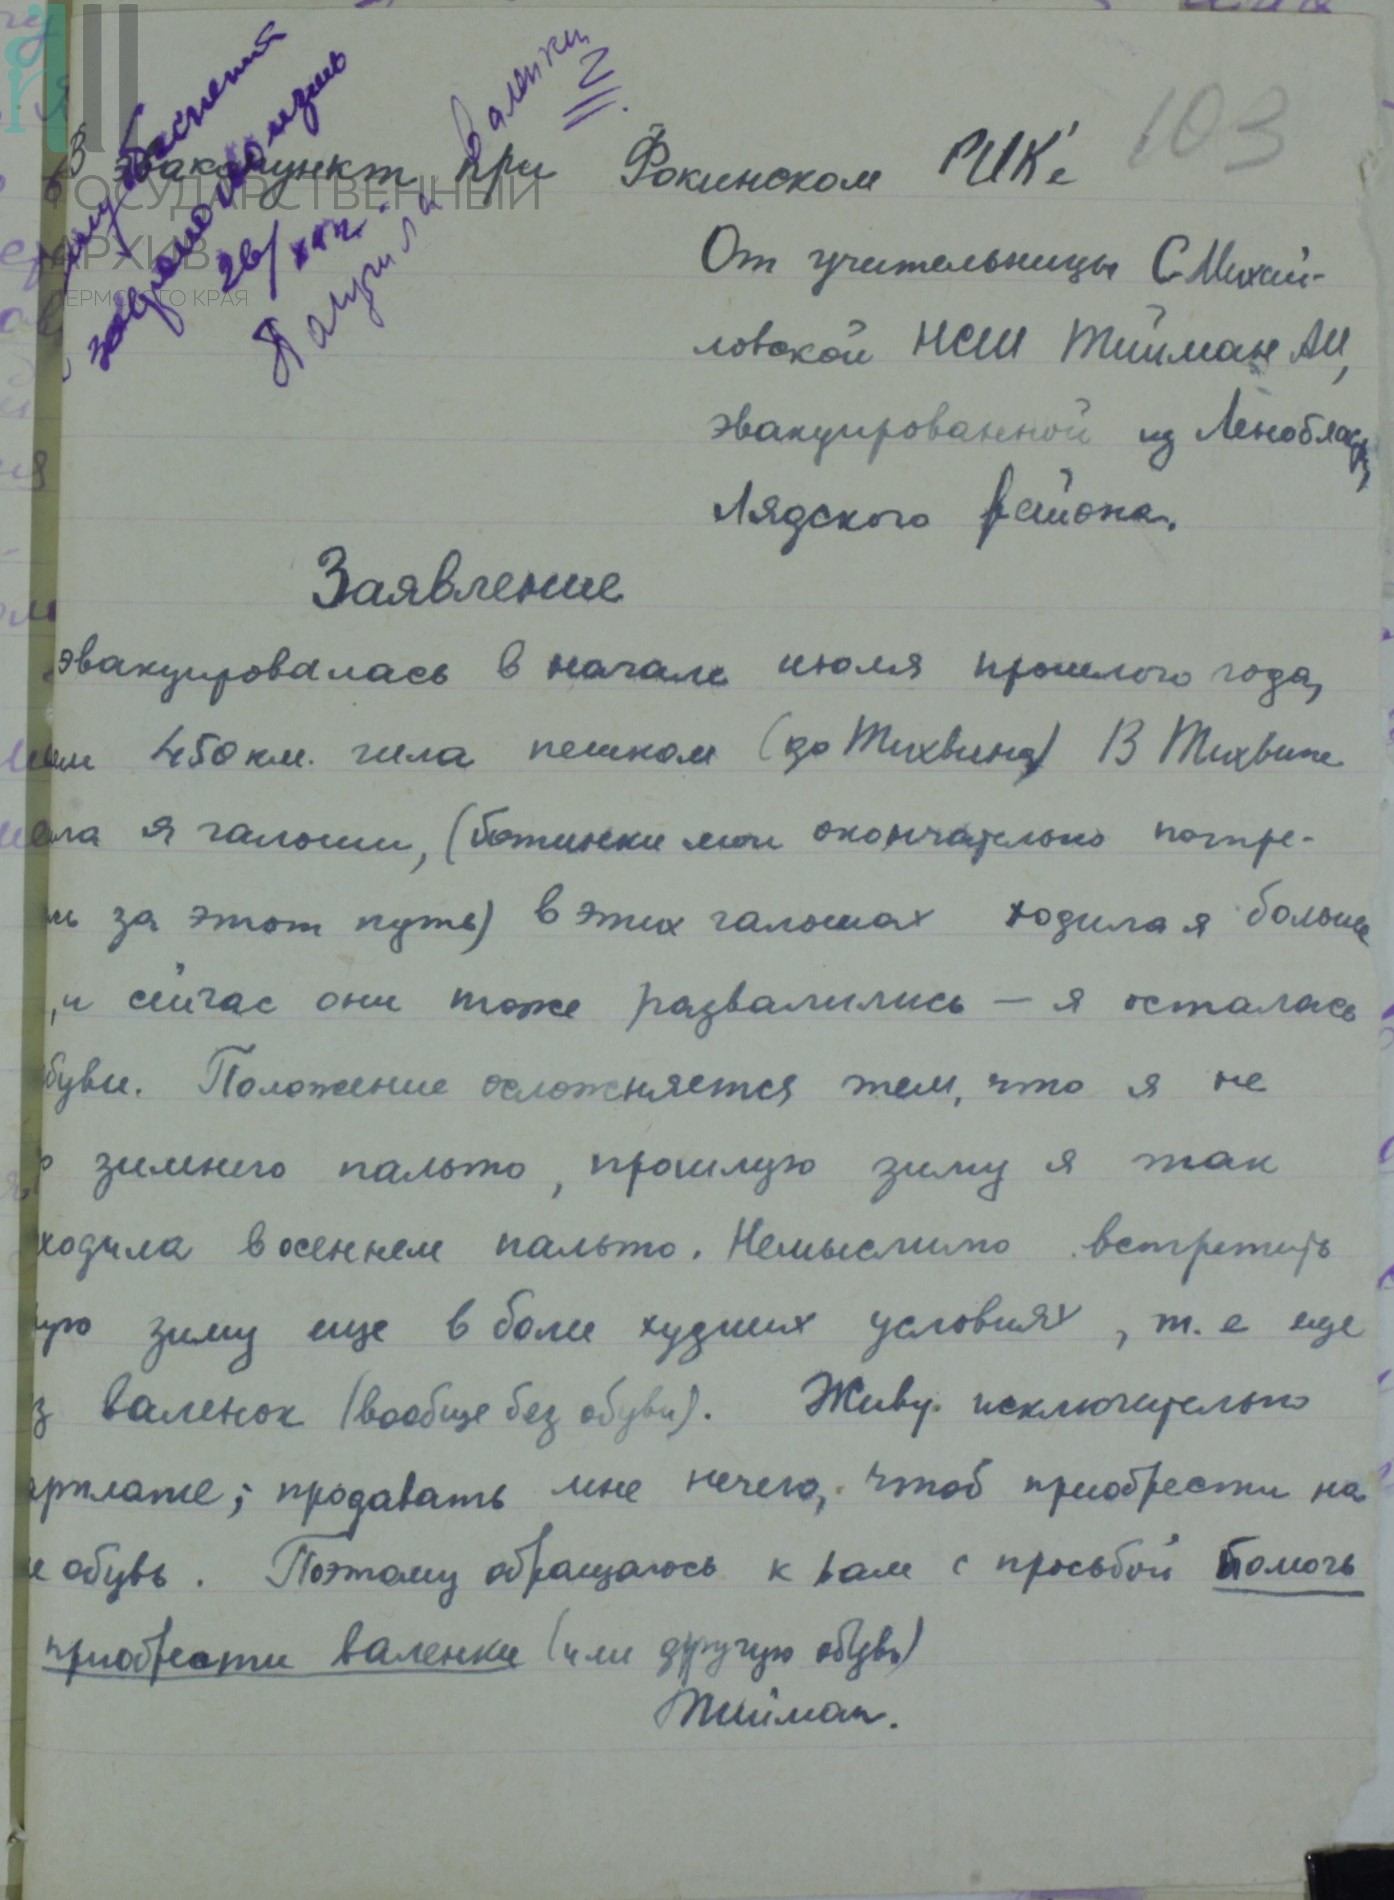 103
Валенки
Получила
26/XII
В эвакопункт при Фокинском РИК'е
ГОСУДАРСТВЕННЫЙ
АРХИВ
ПЕРМСКОГО КРАЯ
От учительницы С-Михай-
ловской НСШ Тийман АИ,
эвакуированной из Ленобласти,
Лядского района.
Заявление
эвакуировалась в начале июля прошлого года,
450 км. шла пешком (до Тихвина) В Тихвине
я галоши, (ботинки мои окончательно потре-
за этот путь) в этих галошах ходила я больше
, и сейчас они тоже развалились — я осталась
буви. Положение осложняется тем, что я не
зимнего пальто, прошлую зиму я так
ходила в осеннем пальто. Немыслимо встретить
зиму еще в боле худших условиях, т. е еще
з валенок (вообще без обуви). Живу исключительно
арплате; продавать мне нечего, чтоб приобрести на
е обувь. Поэтому обращаюсь к вам с просьбой помочь
приобрести валенки (или другую обувь)
Тийман.